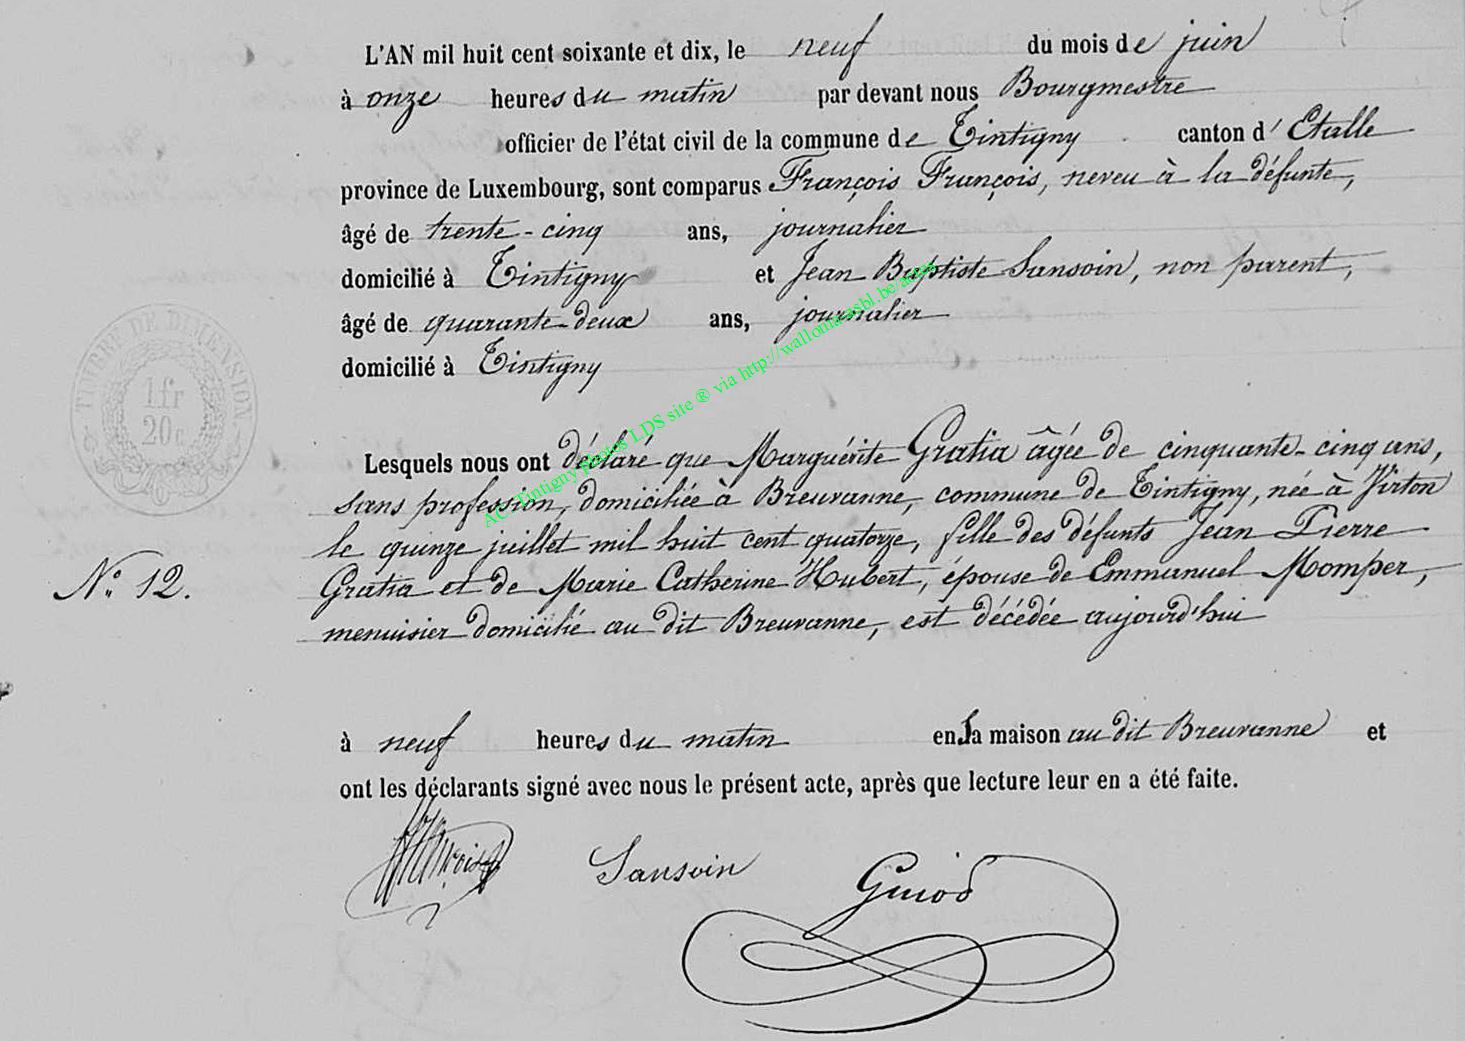 L'AN mil huit cent soixante et dix, le neuf du mois de juin
à onze heures du matin par devant nous Bourgmestre
officier de l'état civil de la commune de Tintigny canton d' Etalle
province de Luxembourg, sont comparus François François, neveu à la défunte,
âgé de trente-cinq ans, journalier
domicilié à Tintigny et Jean Baptiste Sansoin, non parent,
âgé de quarante-deux ans, journalier
domicilié à Tintigny
TIMBRE DE DIMENSION
1 fr
20 c
AC Tintigny photos LDS site ® via http://wallonia-asbl.be/actes
Lesquels nous ont déclaré que Marguérite Gratia âgée de cinquante-cinq ans,
sans profession, domiciliée à Breuvanne, commune de Tintigny, née à Virton
le quinze juillet mil huit cent quatorze, fille des défunts Jean Pierre
N° 12.
Gratia et de Marie Catherine Hubert, épouse de Emmanuel Momper,
menuisier domicilié au dit Breuvanne, est décédée aujourd'hui
à neuf heures du matin en sa maison au dit Breuvanne et
ont les déclarants signé avec nous le présent acte, après que lecture leur en a été faite.
François Sansoin Guiod